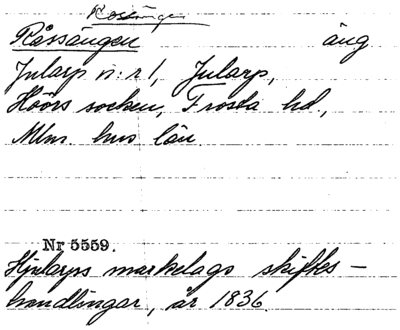 Rossängen
Råssängen äng
Jularp n:r 1, Jularp,
Höörs socken, Frosta hd.,
Mlm. hus län.
Nr 5559.
Hjularps markelags skiftes-
handlingar, år 1836.